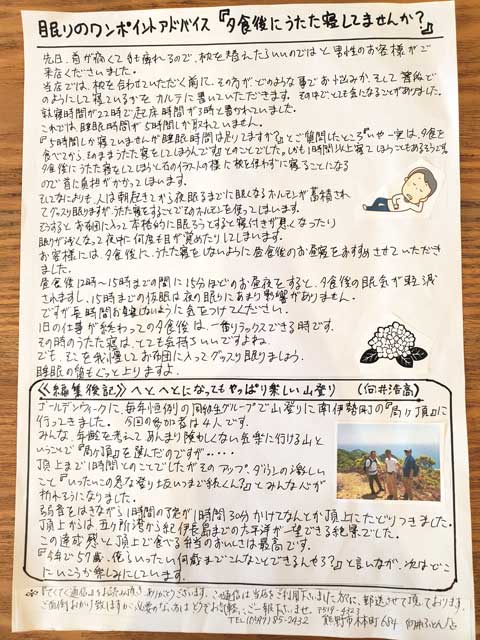 眠りのワンポイントアドバイス『夕食後にうたた寝してませんか?』
先日、首が痛くて肩も疲れるので、枕を替えたらいいのではと男性のお客様がご
来店くださいました。
当店では、枕を合わせていただく前に、その方がどのような事でお悩みか、そして普段ど
のようにして寝ているかをカルテに書いていただきます。そのなかでとても気になることがありました。
就寝時間が22時で起床時間が3時と書かれていました。
これでは睡眠時間が5時間しか取れていません。
『5時間しか寝ていませんが睡眠時間は足りてますか?』とご質問したところ『いや一実は、夕食を
食べてから、そのままうたた寝をしてしまうんです』とのことでした。しかも1時間以上寝てしまうこともあるそうです。
夕食後にうたた寝をしてしまうと右のイラストの様に枕を使わずに寝ることになる
ので首に負担がかかってしまいます。
そしてなによりも人は朝起きてから夜眠るまでに眠くなるホルモンが蓄積され
てグッスリ眠りますがうたた寝をすることでそのホルモンを使ってしまいます。
そうするとお布団に入って本格的に眠ろうとすると寝付きが悪くなったり
眠りが浅くなって夜中に何度も目が覚めたりしてしまいます。
お客様には、夕食後に、うたた寝をしないように昼食後のお昼寝をおすすめさせていただき
ました。
昼食後12時~15時までの間に15分ほどのお昼寝をすると、夕食後の眠気が軽減
されますし、15時までの仮眠は夜の眠りにあまり影響がありません。
ですが長時間お昼寝しないように気をつけてください。
1日の仕事が終わっての夕食後は、一番リラックスできる時です。
その時のうたた寝は、とても気持ちいいですよね。
でも、そこを我慢してお布団に入ってグッスリ眠りましょう。
睡眠の質もぐっと上がりますよ。
《編集後記》へとへとになってもやっぱり楽しい山登り (向井浩高)
ゴールデンウィークに、毎年恒例の同級生グループで山登りに南伊勢町の『局ヶ頂』に
行ってきました。今回の参加者は4人です。
みんな、年齢を考えてあんまり険もしくない気楽に行ける山と
いうことで『局ヶ頂』を選んだのですが・・・・・
頂上まで1時間とのことでしたがそのアップ、ダウンの激しい
こと『いったいこの急な登り坂いつまで続くん?』とみんな心が
折れそうになりました。
弱音をはきながら1時間の予定が1時間30分かけてなんとか頂上にたどりつきました。
頂上からは五ヶ所湾から紀伊長島までの太平洋が一望できる絶景でした。
この達成感と頂上で食べる弁当のおいしさは最高です。
『今年で57歳、俺らいったい何歳までこんなことできるんやろ?』と言いながら、次はどこ
にいこうか楽しみにしています。
※『てくてく通信』をお読み頂き、ありがとうございます。この通信は当店をご利用下さいました方に、郵送させて頂いております。
ご面倒おかけ致しますが、必要のない方はどうぞお気軽にご一報下さいませ。〒519-4323
TEL(0597)85-2432 熊野市木本町684 向井ふとん店